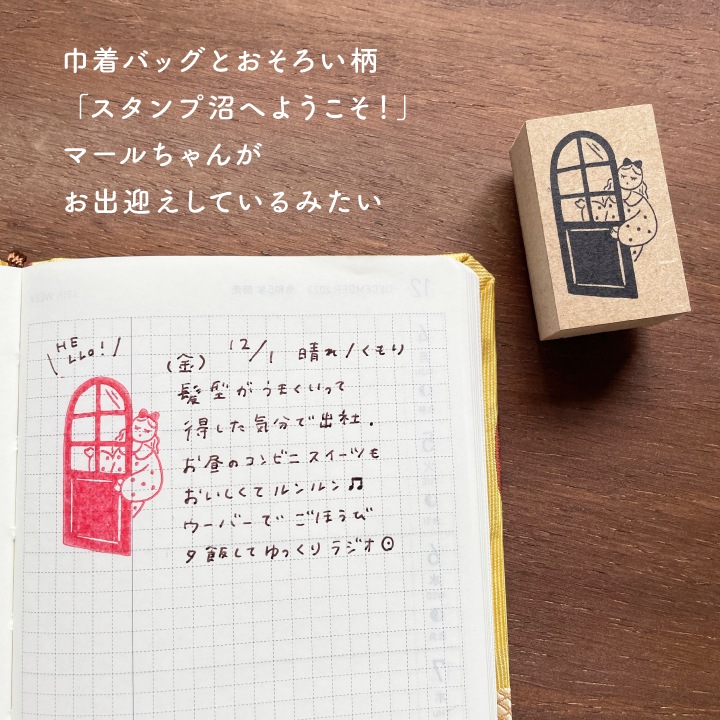 巾着バッグとおそろい柄
「スタンプ沼へようこそ！」
マールちゃんが
お出迎えしているみたい
HE
LLO!
(金) 12/1 晴れ/くもり
髪型がうまくいって
得した気分で出社.
お昼のコンビニスイーツも
おいしくてルンルン♫
ウーバーでごほうび
夕飯してゆっくりラジオ⊙